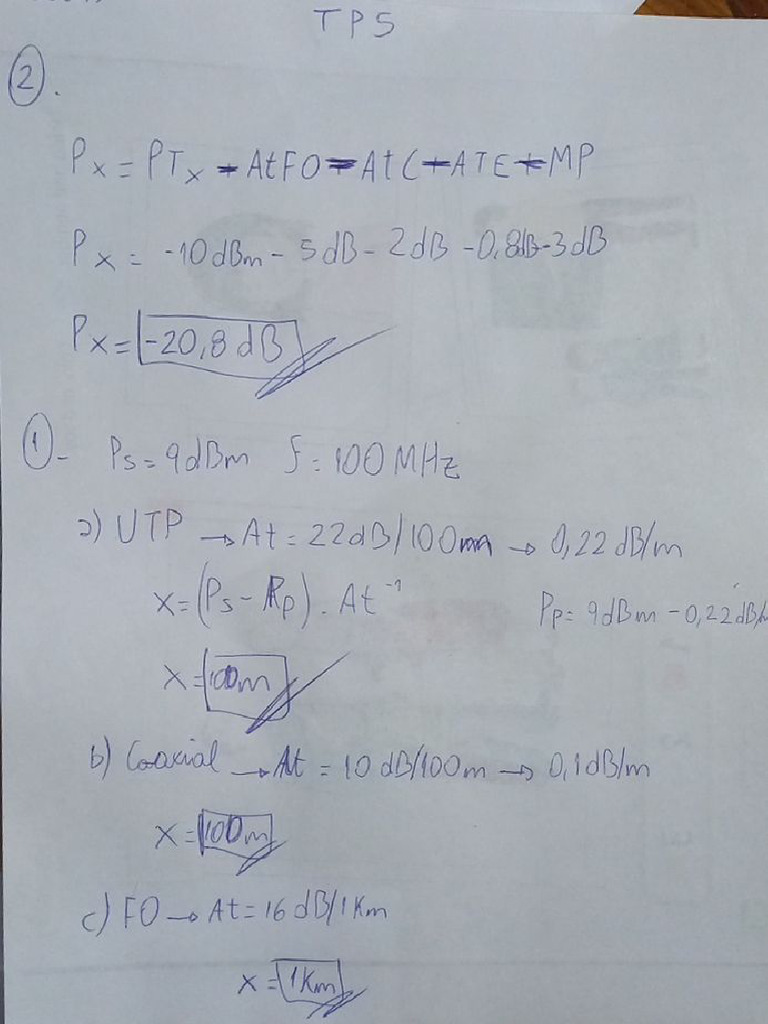 TP5
②.
Px = PTx - AtFO - AtC - ATE - MP
Px = -10dBm - 5dB - 2dB - 0,8dB - 3dB
Px = -20,8 dB
①- Ps = 9dBm f = 100MHz
a) UTP → At = 22dB/100m → 0,22 dB/m
x = (Ps - Pp) . At⁻¹
Pp = 9dBm - 0,22dB/
x = 100m
b) Coaxial → At = 10 dB/100m → 0,1dB/m
x = 100m
c) FO → At = 16 dB/1Km
x = 1Km